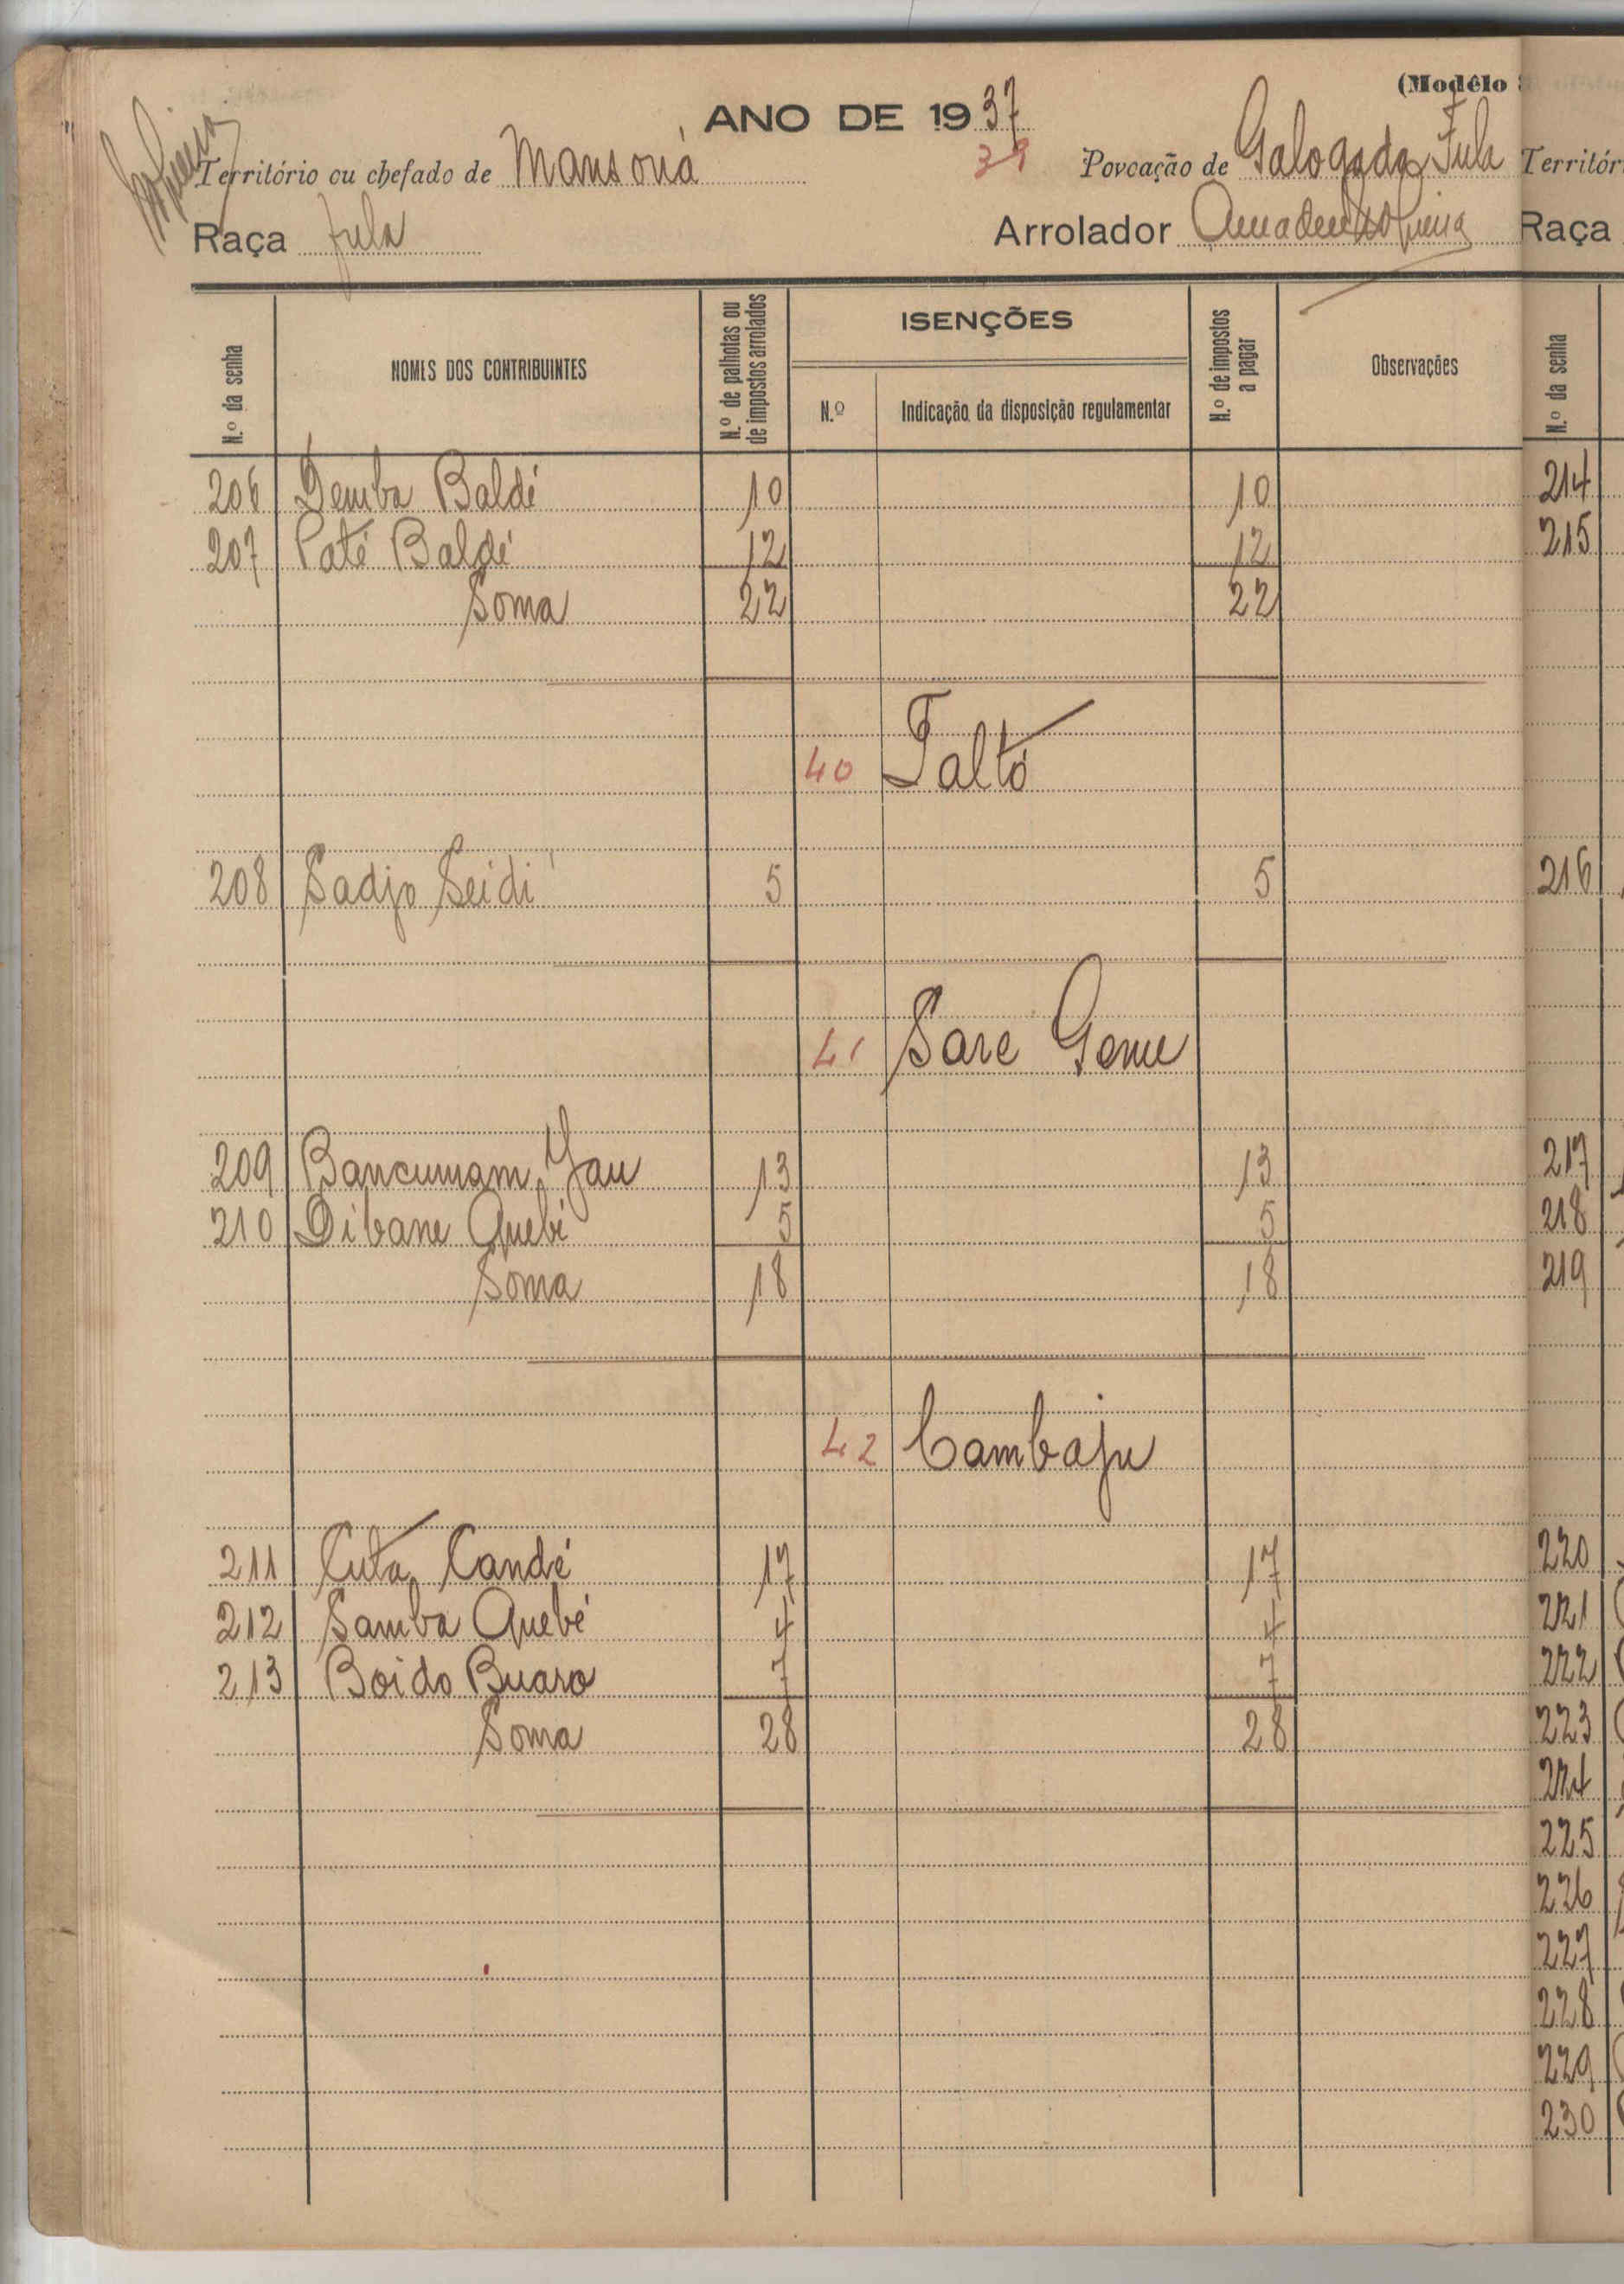 (Modêlo
ANO DE 1937
Território ou chefado de Mansoná 39 Povoação de Galogada Fula
Raça Fula Arrolador Amadeu Nogueira
N.º da senha NOMES DOS CONTRIBUINTES N.º de palhotas ou de impostos arrolados ISENÇÕES N.º Indicação da disposição regulamentar N.º de impostos a pagar Observações
206 Demba Baldé 10 10
207 Paté Baldé 12 12
Soma 22 22
40 Taltó
208 Sadjo Seidi 5 5
41 Sare Geme
209 Bancumam Jau 13 13
210 Dibane Quebé 5 5
Soma 18 18
42 Cambaju
211 Cuta Candé 17 17
212 Samba Quebé 4 4
213 Boido Buaro 7 7
Soma 28 28
Territór
Raça
N.º da senha
214
215
216
217
218
219
220
221
222
223
224
225
226
227
228
229
230